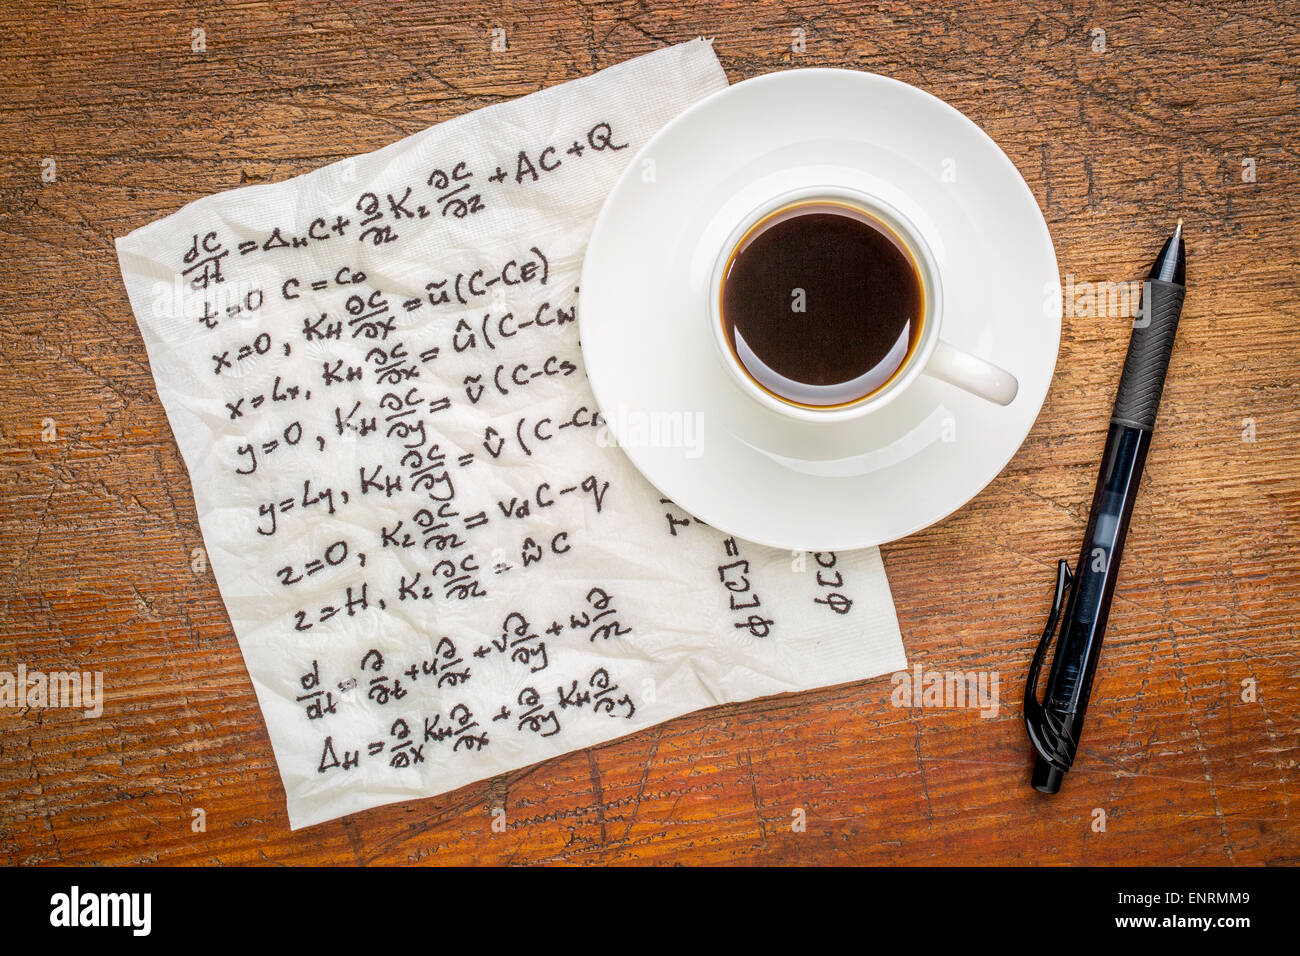 dC/dt = Δ_H C + ∂/∂z K_z ∂C/∂z + AC + Q
t=0 C = C₀
x=0, K_H ∂C/∂x = ũ (C-C_E)
x=Lx, K_H ∂C/∂x = û (C-C_W
y=0, K_H ∂C/∂y = ṽ (C-C_S
y=Ly, K_H ∂C/∂y = v̂ (C-C
z=0, K_z ∂C/∂z = v_d C - q
z=H, K_z ∂C/∂z = ŵ C
d/dt = ∂/∂t + u ∂/∂x + v ∂/∂y + w ∂/∂z
Δ_H = ∂/∂x K_H ∂/∂x + ∂/∂y K_H ∂/∂y
ϕ[C]=
ϕ[C
alamy
Image ID: ENRMM9
www.alamy.com